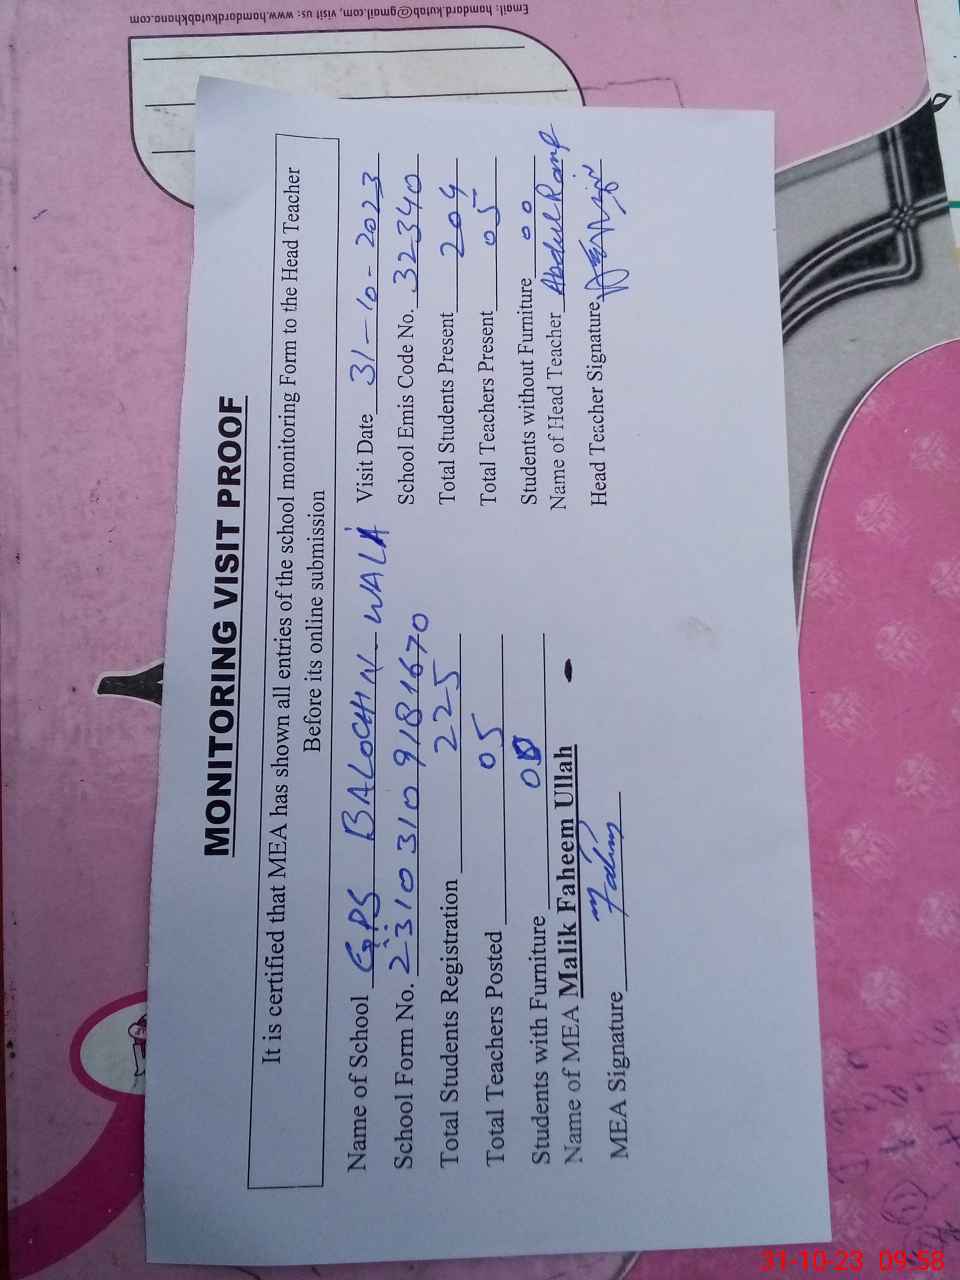 Email: hamdard.kutab@gmail.com, visit us: www.hamdardkutabkhana.com
MONITORING VISIT PROOF
It is certified that MEA has shown all entries of the school monitoring Form to the Head Teacher
Before its online submission
Name of School GPS BALOCHIN WALA Visit Date 31-10-2023
School Form No. 2310310 9181670 School Emis Code No. 32340
Total Students Registration 225 Total Students Present 204
Total Teachers Posted 05 Total Teachers Present 05
Students with Furniture 00 Students without Furniture 00
Name of MEA Malik Faheem Ullah Name of Head Teacher Abdul
MEA Signature Head Teacher Signature
31-10-23 09:58